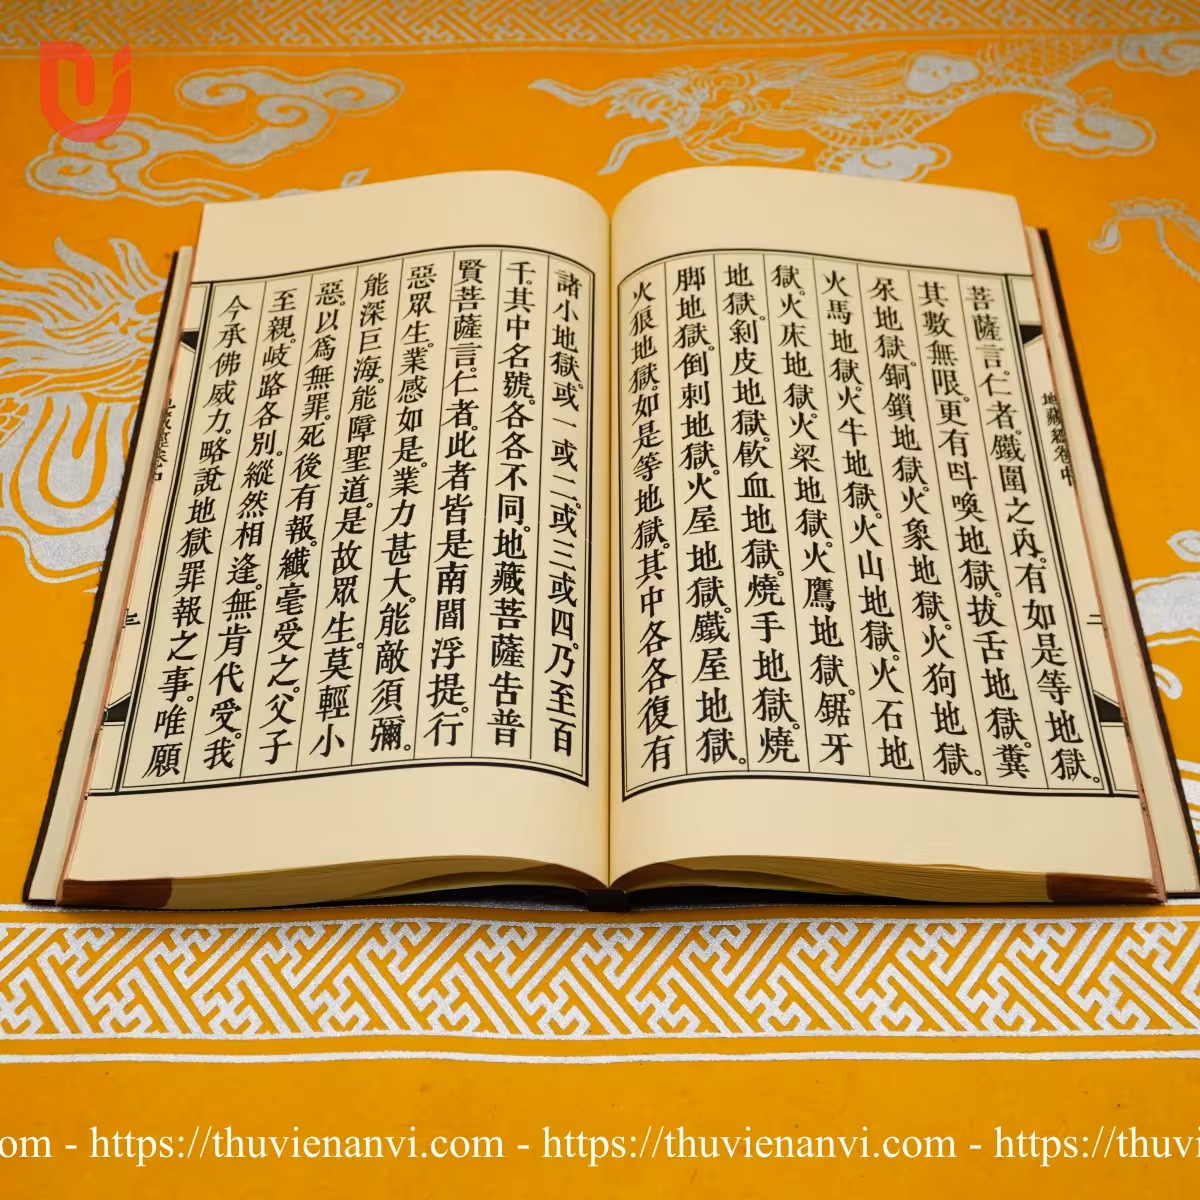 地藏經卷中
二
菩薩言。仁者。鐵圍之內。有如是等地獄。
其數無限。更有呌喚地獄。拔舌地獄。糞
尿地獄。銅鎖地獄。火象地獄。火狗地獄。
火馬地獄。火牛地獄。火山地獄。火石地
獄。火床地獄。火梁地獄。火鷹地獄。鋸牙
地獄。剝皮地獄。飮血地獄。燒手地獄。燒
脚地獄。倒刺地獄。火屋地獄。鐵屋地獄。
火狼地獄。如是等地獄。其中各各復有
諸小地獄。或一或二。或三或四。乃至百
千。其中名號。各各不同。地藏菩薩告普
賢菩薩言。仁者。此者皆是南閻浮提。行
惡眾生。業感如是。業力甚大。能敵須彌。
能深巨海。能障聖道。是故眾生。莫輕小
惡。以爲無罪。死後有報。纖毫受之。父子
至親。岐路各別。縱然相逢。無肯代受。我
今承佛威力。略說地獄罪報之事。唯願
三
om - https://thuvienanvi.com - https://thuvienanvi.com - https://thuvi